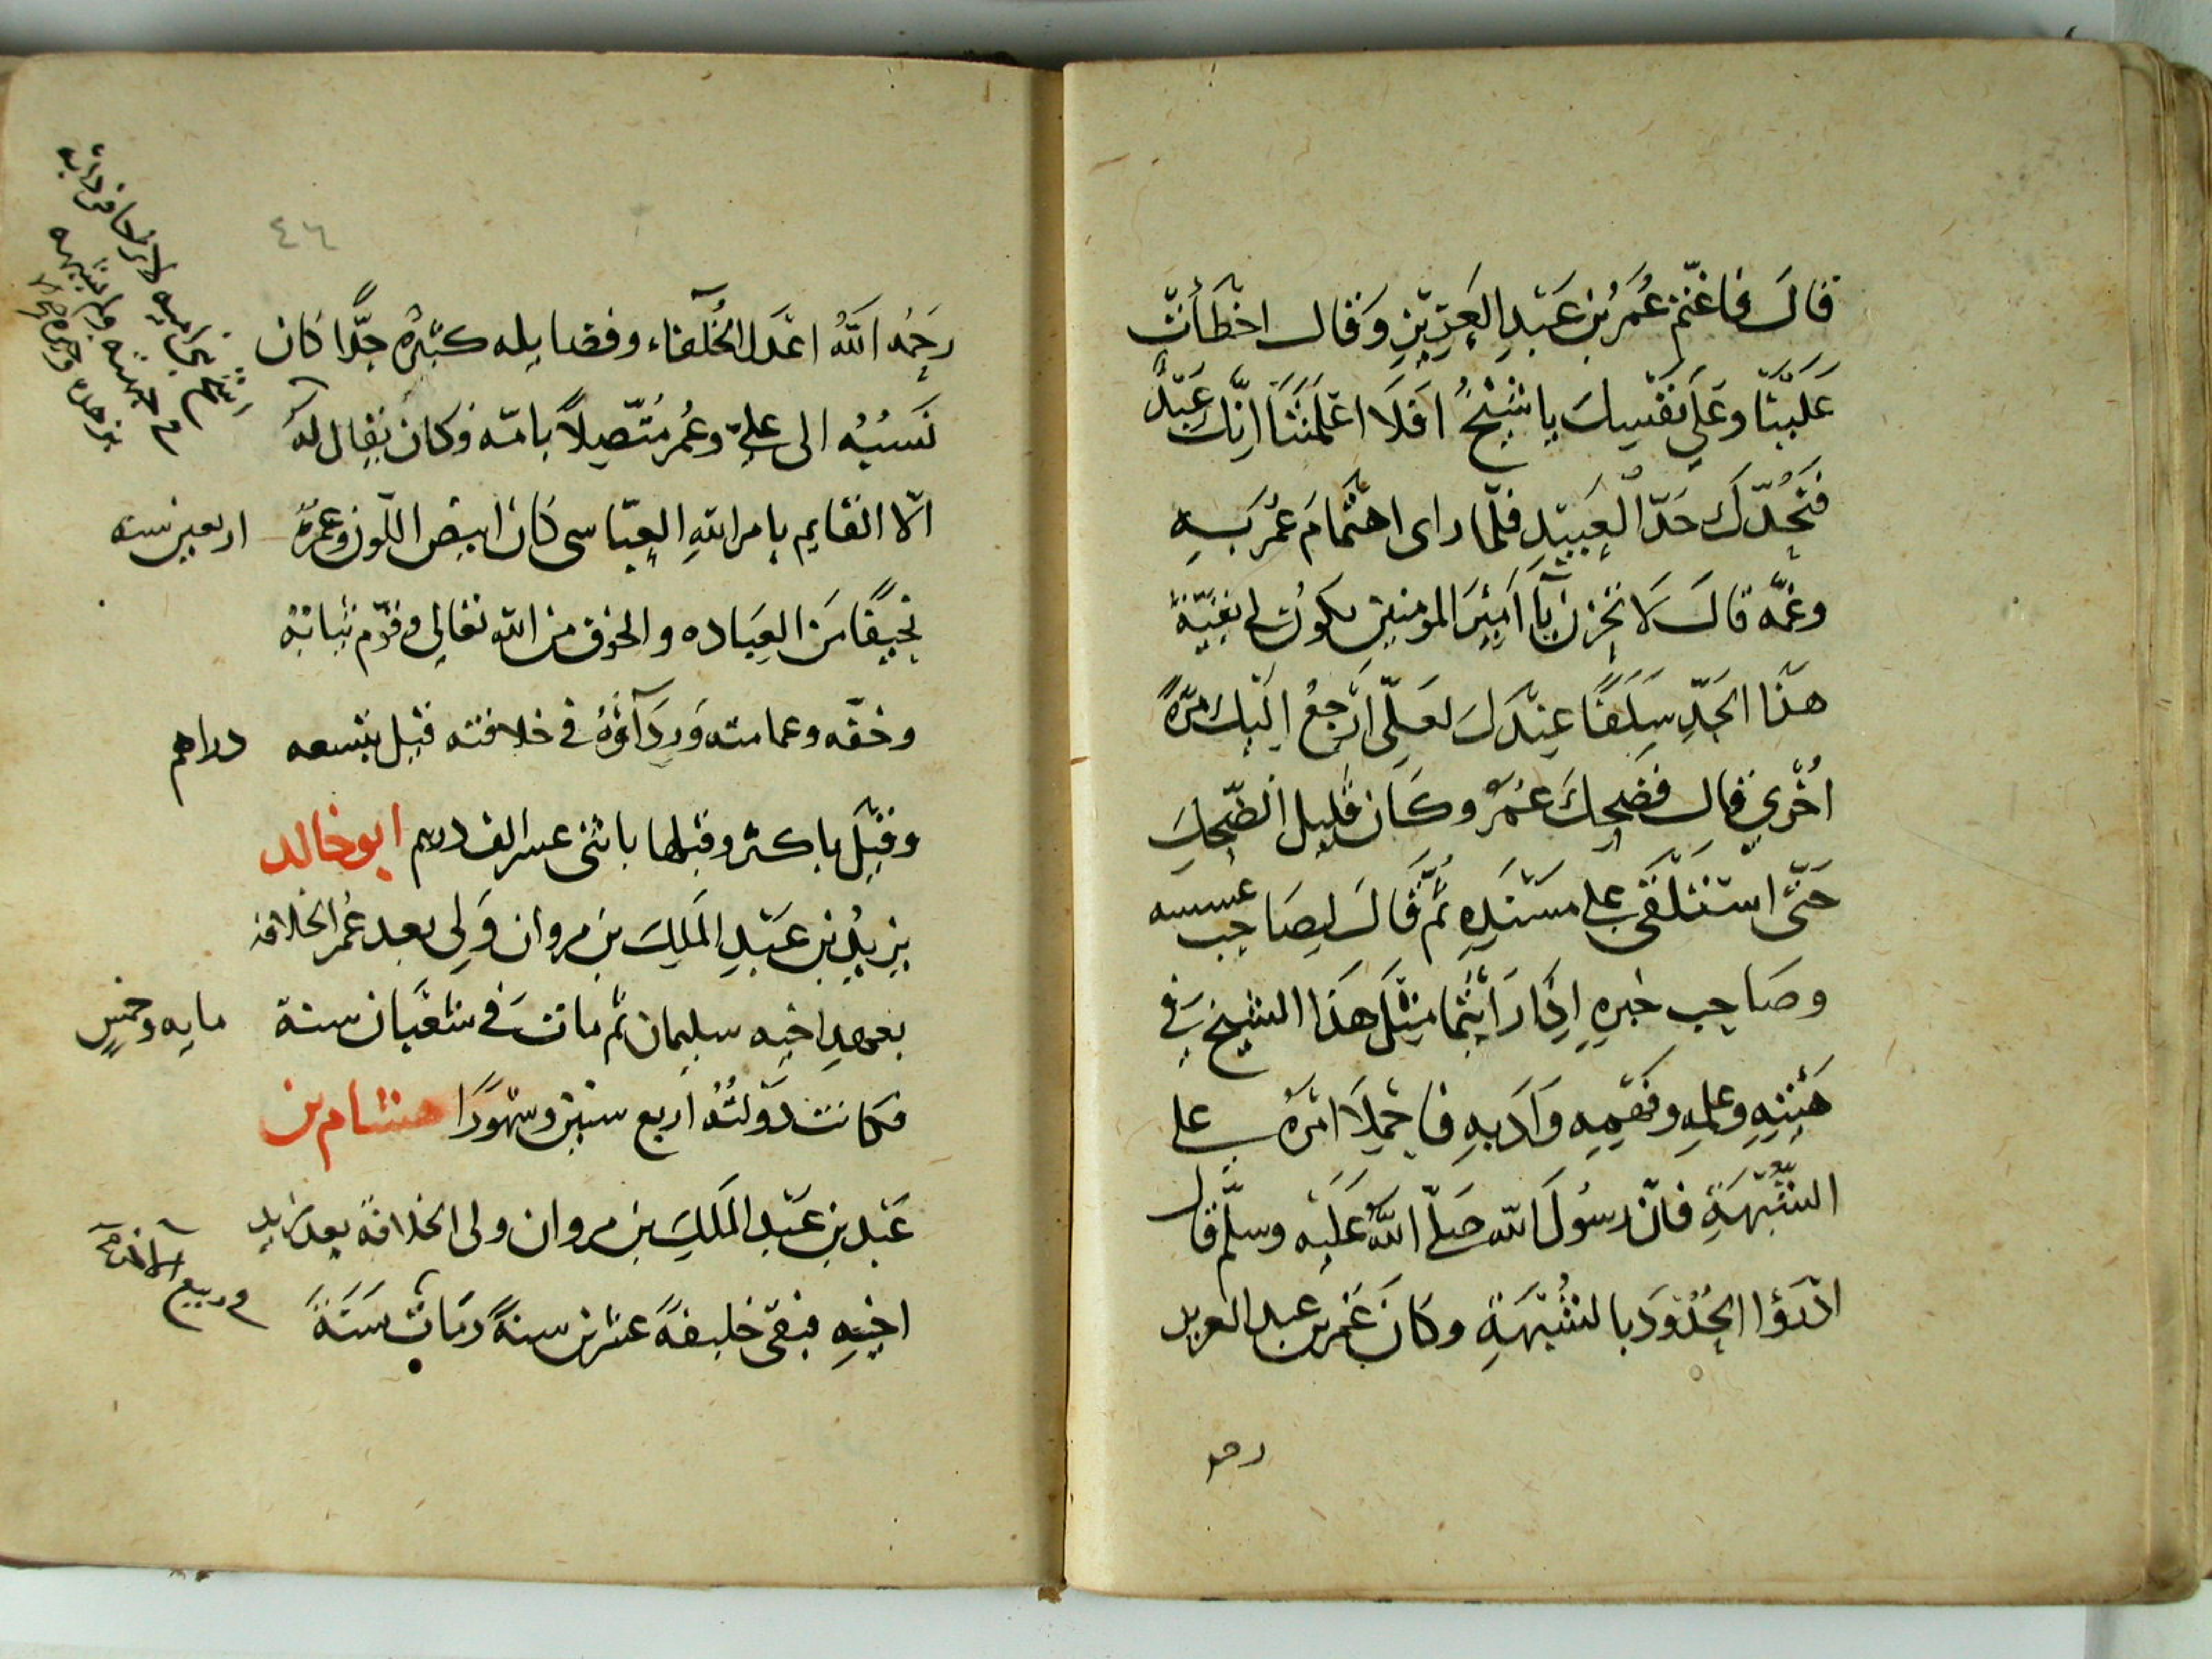 قالَ فاغتمّ عُمَرُ بن عَبْدِ العَزِيْزِ وَقَال اخْطَأتَ
عَلَيْنَا وعَلى نَفْسِكَ يا شَيْخُ افَلَا اعْلَمْتَنَا انّكَ عَبْدٌ
فَنَحُدّكَ حَدّ الْعَبِيْدِ فلمّا راى اهتمَامَ عُمَر بَهِ
وغمّه قالَ لَا تحْزن يَآ امَيْرَ المومنين يكونُ لى بَقِيّةُ
هَذَا الحَدِّ سَلَفًا عِنْدَكَ لعَلّى ارْجعُ اليْكَ مَرّةً
اخْرى قال فضَحِكَ عُمَرُ وكَان قليل الضّحِكِ
حَتّى اسْتَلْقَى على مسْنَدِهِ ثُمّ قَالَ لِصَاحِب عسسه
وصَاحِب خبرِهِ اِذَا رَايْتُمَا مِثْلَ هَذا الشيخ فَى
هَيْئتِهِ وعلمِهِ وفَهْمِهِ وَادَبِهِ فاحْمِلَا امْرهُ على
الشُّبْهَةِ فانّ رسُولَ الله صَلّى اللهُ عَلَيْه وسلّم قال
ادْرَؤا الحُدُوْدَ بالشُبْهَةِ وكَانَ عُمَر بن عبد العزيز
رحمه
٤٦
رَحِمُه اللهُ اعْدَل الخُلَفاء وفضايله كَثيْرهُ جدًّا كان
نَسَبُهُ الى علىّ وعُمر مُتّصِلاً بامّه وكانَ يقال لهُ
اشجّ بنى اميه
الّا القايم بامر الله العبّاسى كان ابيض اللّون وعمرهُ اربعين سنه
نحيفًا مَن العِبَاده والخوف من الله تعالى وقوّم ثيابهُ
وخفّه وعمامته وَرِدَآؤهُ فى خلافته قبل بتسعه دراهم
وقيْلَ باكثر وقبلها باثنى عشر الف درهم ابو خالد
يزيْدُ بن عَبْدِ المَلِكَ بن مروان وَلِى بعد عُمر الخلافه
بعهدِ اخيه سليمان ثم ماتَ فَى شعْبَان سنة مايه وخمْسٍ
فكانت دَوْلتُهُ اربع سنين وشهوْرًا هشام بن
عَبْد بن عَبْد المَلِكِ بن مروان ولى الخلافة بعد يزيد
اخيْهِ فبقى خليفةً عشرين سنةً ومَاتَ سَنَةَ
فى ربيع الآخر